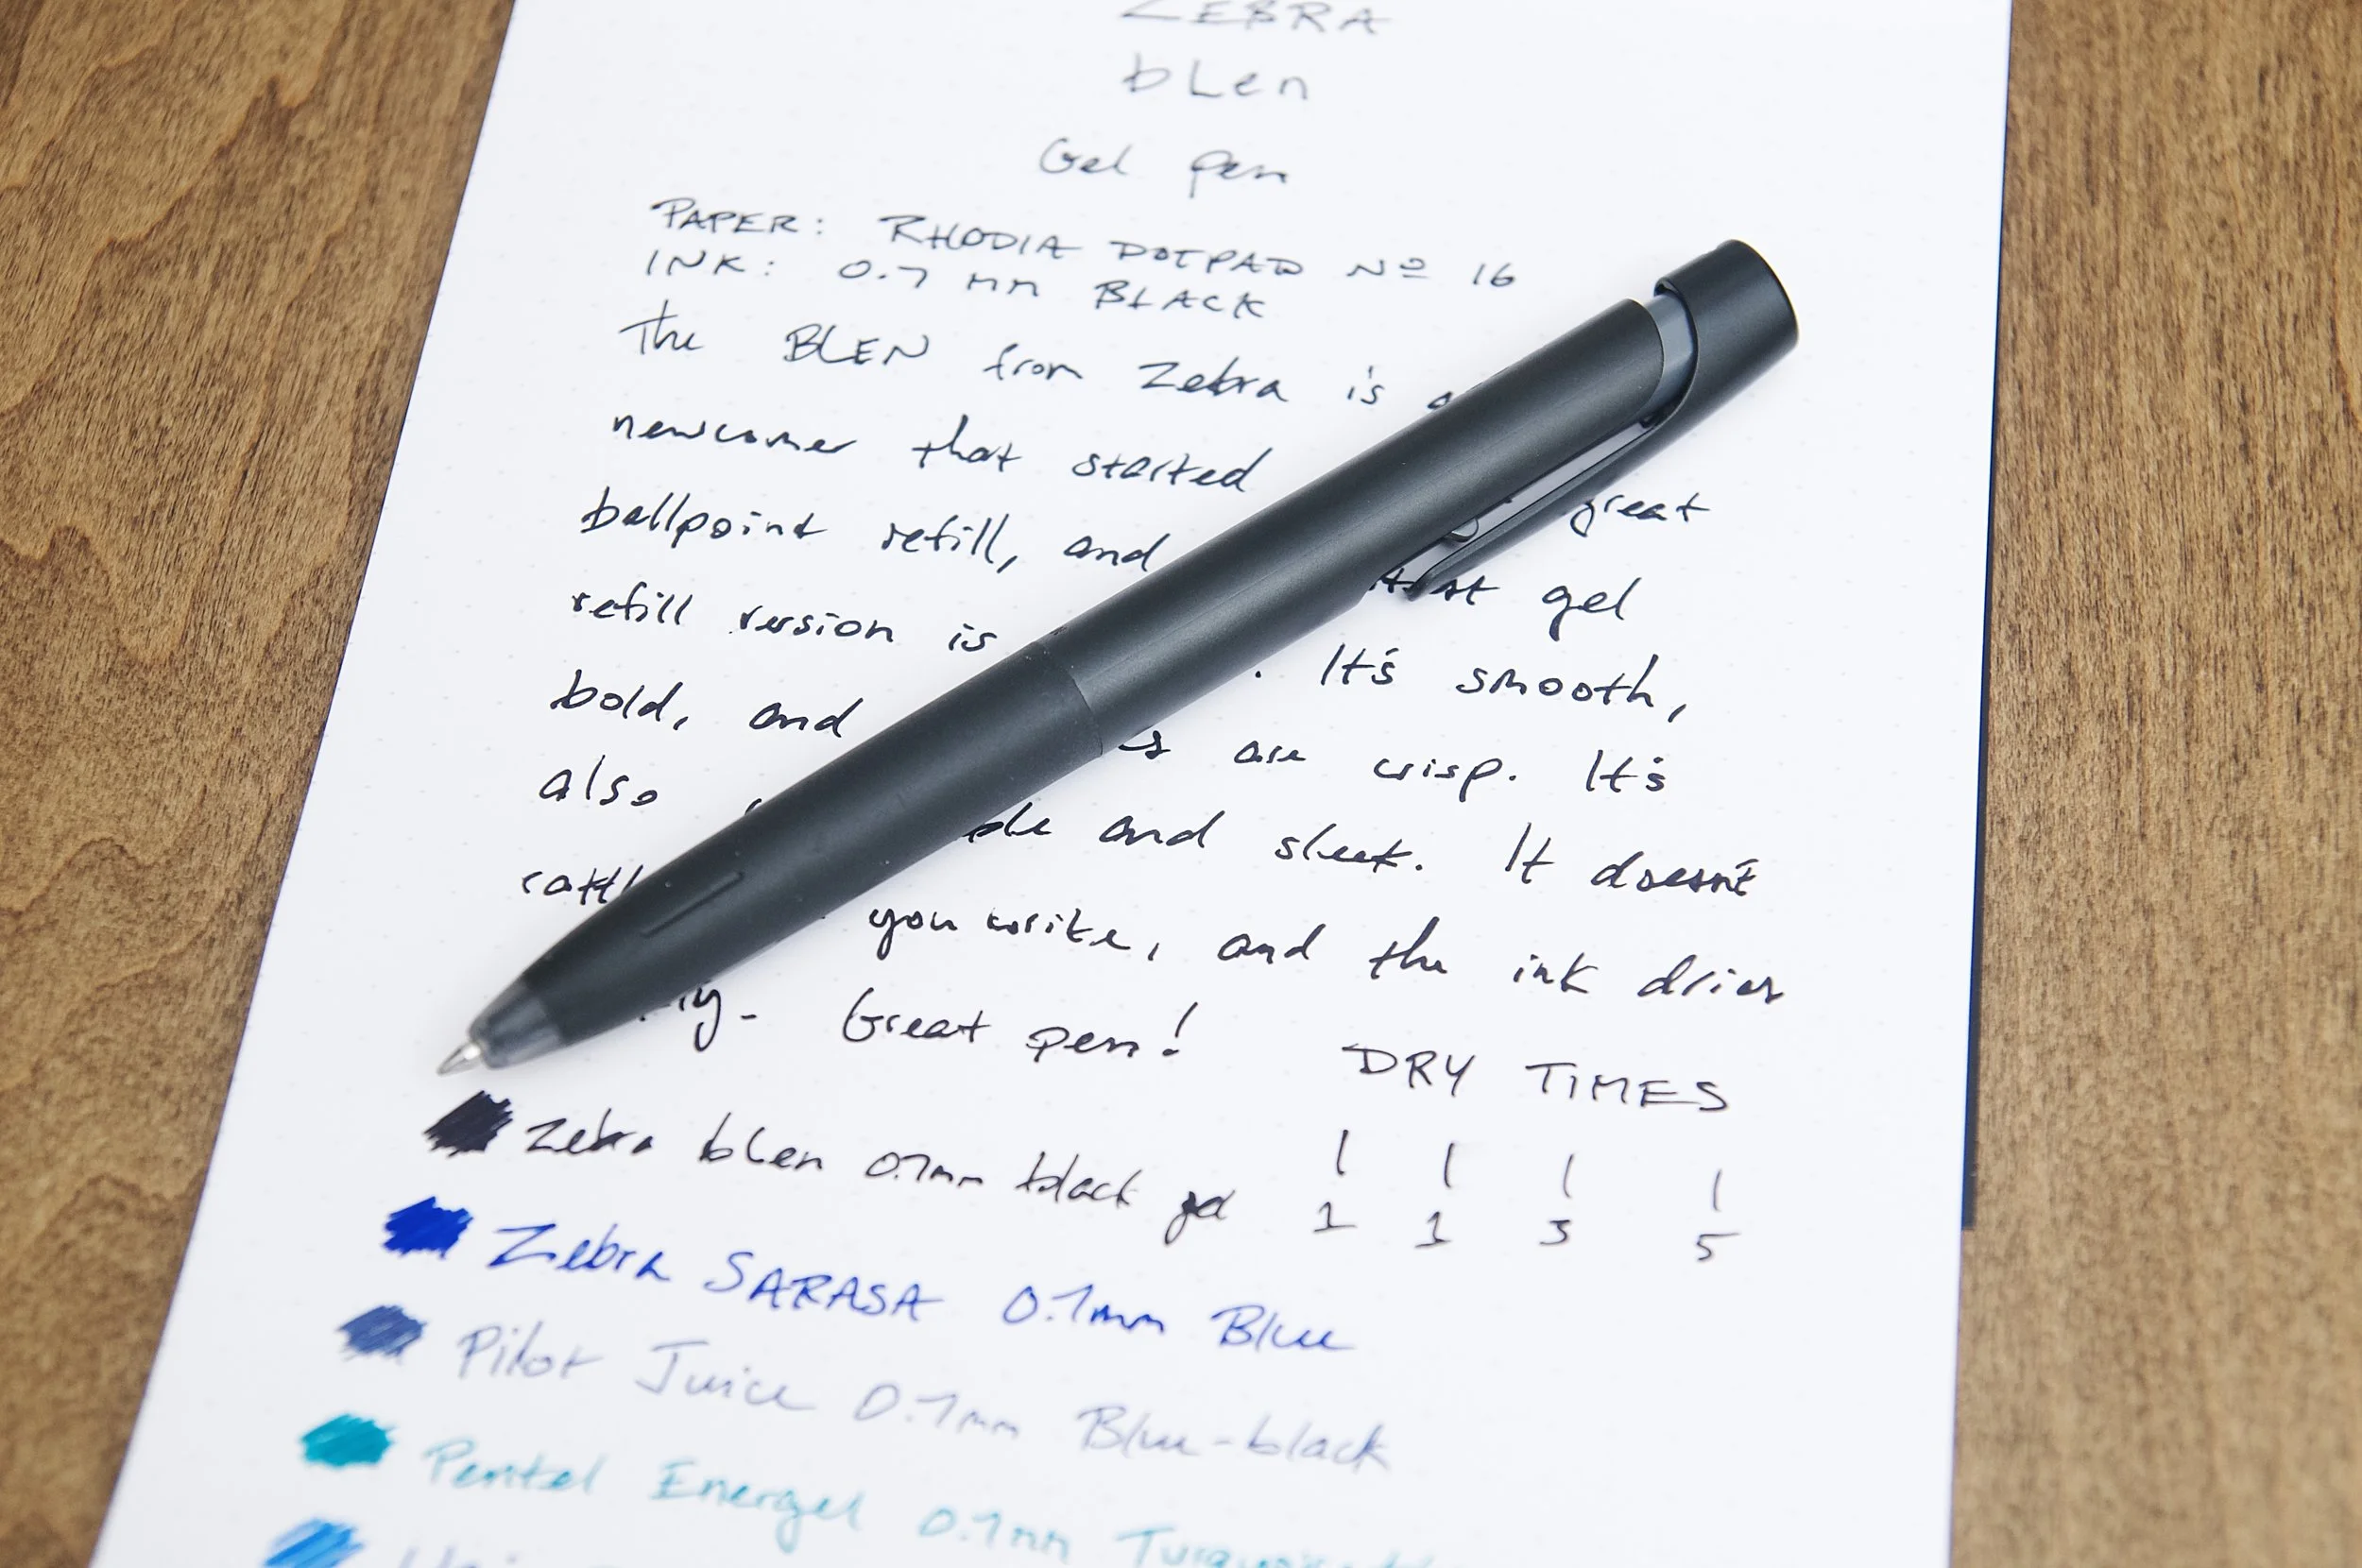 ZEBRA
bLen
Gel Pen
PAPER: RHODIA DOTPAD Nº 16
INK: 0.7 mm BLACK
The BLEN from Zebra is a
newcomer that started great
ballpoint refill, and that gel
refill version is . It's smooth,
bold, and are crisp. It's
also and sleek. It doesn't
you write, and the ink dries
Great pen!
DRY TIMES
Zebra bLen 0.7mm black gel
1 1 3 5
Zebra SARASA 0.7mm Blue
Pilot Juice 0.7mm Blue-black
Pentel Energel 0.7mm
Uni